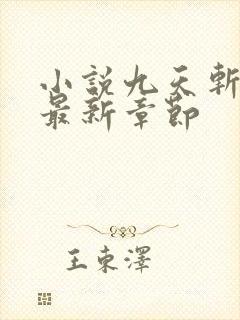 小説九天斬
最新章節
王東澤